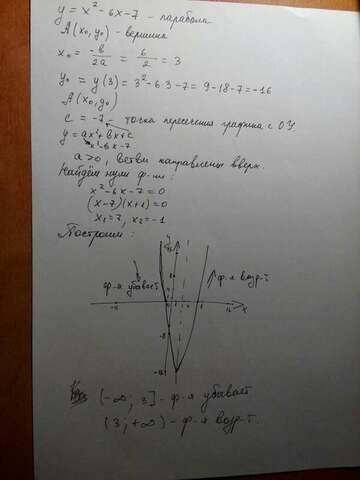 y = x² - 6x - 7 - парабола
A(x₀, y₀) - вершина
x₀ = -b/2a = 6/2 = 3
y₀ = y(3) = 3² - 6·3 - 7 = 9 - 18 - 7 = -16
A(x₀, y₀)
c = -7 - точка пересечения графика с ОУ
y = ax² + bx + c
x² - 6x - 7
a > 0, ветви направлены вверх.
Найдём нули ф-ии:
x² - 6x - 7 = 0
(x-7)(x+1) = 0
x₁ = 7, x₂ = -1
Построим:
y
ф-я убывает
ф-я возр-т
x
-16
(-∞; 3] - ф-я убывает
(3; +∞) - ф-я возр-т.